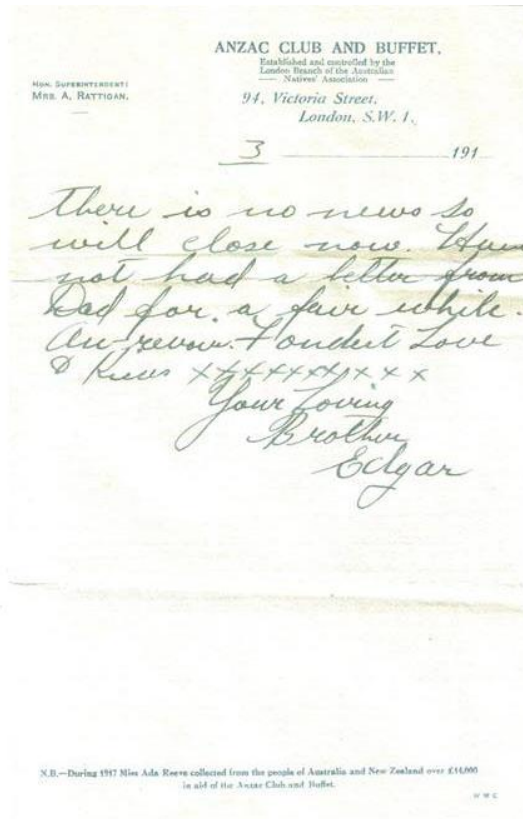 ANZAC CLUB AND BUFFET,
Established and controlled by the
London Branch of the Australian
Natives' Association
HON. SUPERINTENDENT:
MRS. A. RATTIGAN.
94, Victoria Street,
London, S.W. 1.
3 191
there is no news so
will close now. Have
not had a letter from
Dad for a fair while.
Au-revoir. Fondest Love
& Kisses xxxxxxxxxx
Your Loving
Brother
Edgar
N.B.—During 1917 Miss Ada Reeve collected from the people of Australia and New Zealand over £14,000
in aid of the Anzac Club and Buffet.